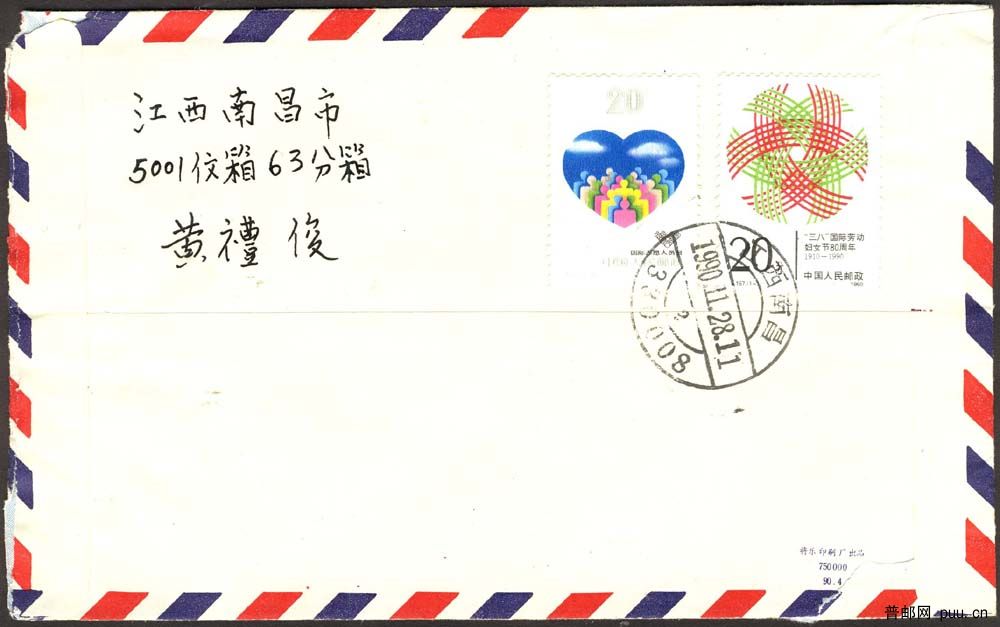 江西南昌市
5001信箱63分箱
黄禮俊
20
中国人民邮政
20
"三八"国际劳动
妇女节80周年
1910—1990
中国人民邮政
1990
江西南昌
1990.11.28.11
330008
750000
90.4
普邮网 puu.cn